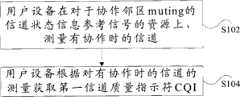 用户设备在对于协作邻区muting的
信道状态信息参考信号的资源上、
测量有协作时的信道
S102
用户设备根据对有协作时的信道的
测量获取第一信道质量指示符CQI
S104